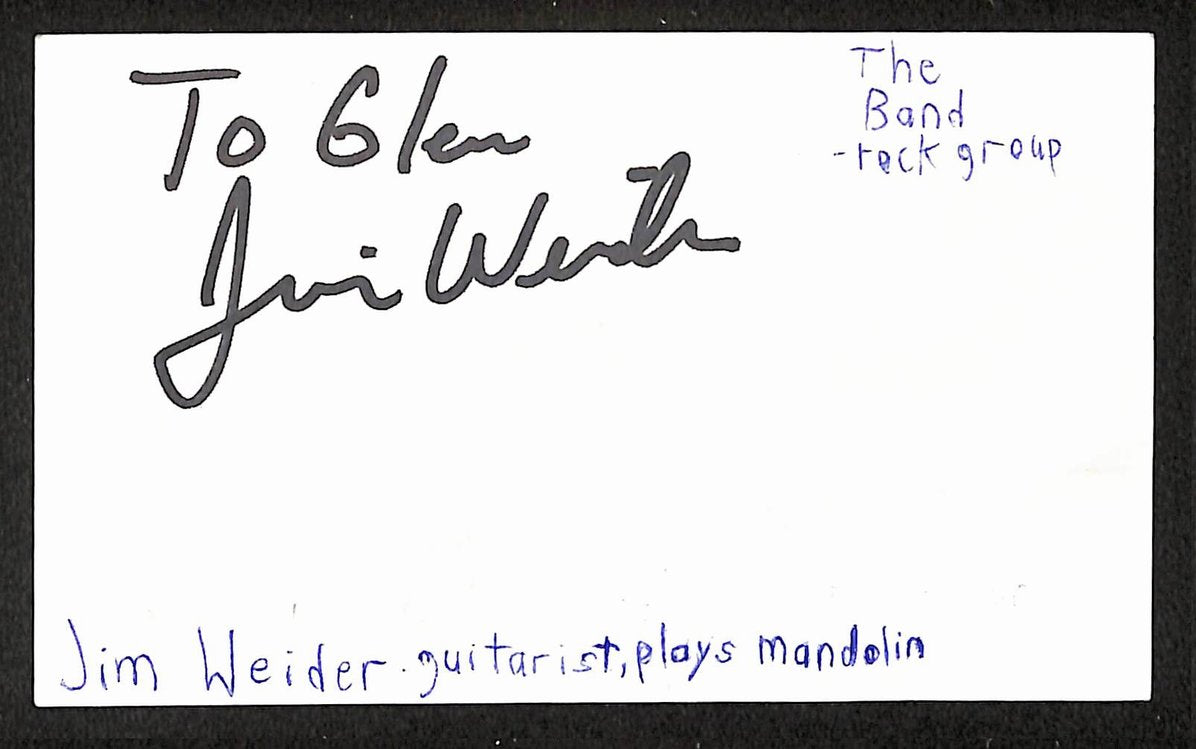 To Glen
Jim Weider
The
Band
-rock group
Jim Weider-guitarist, plays mandolin